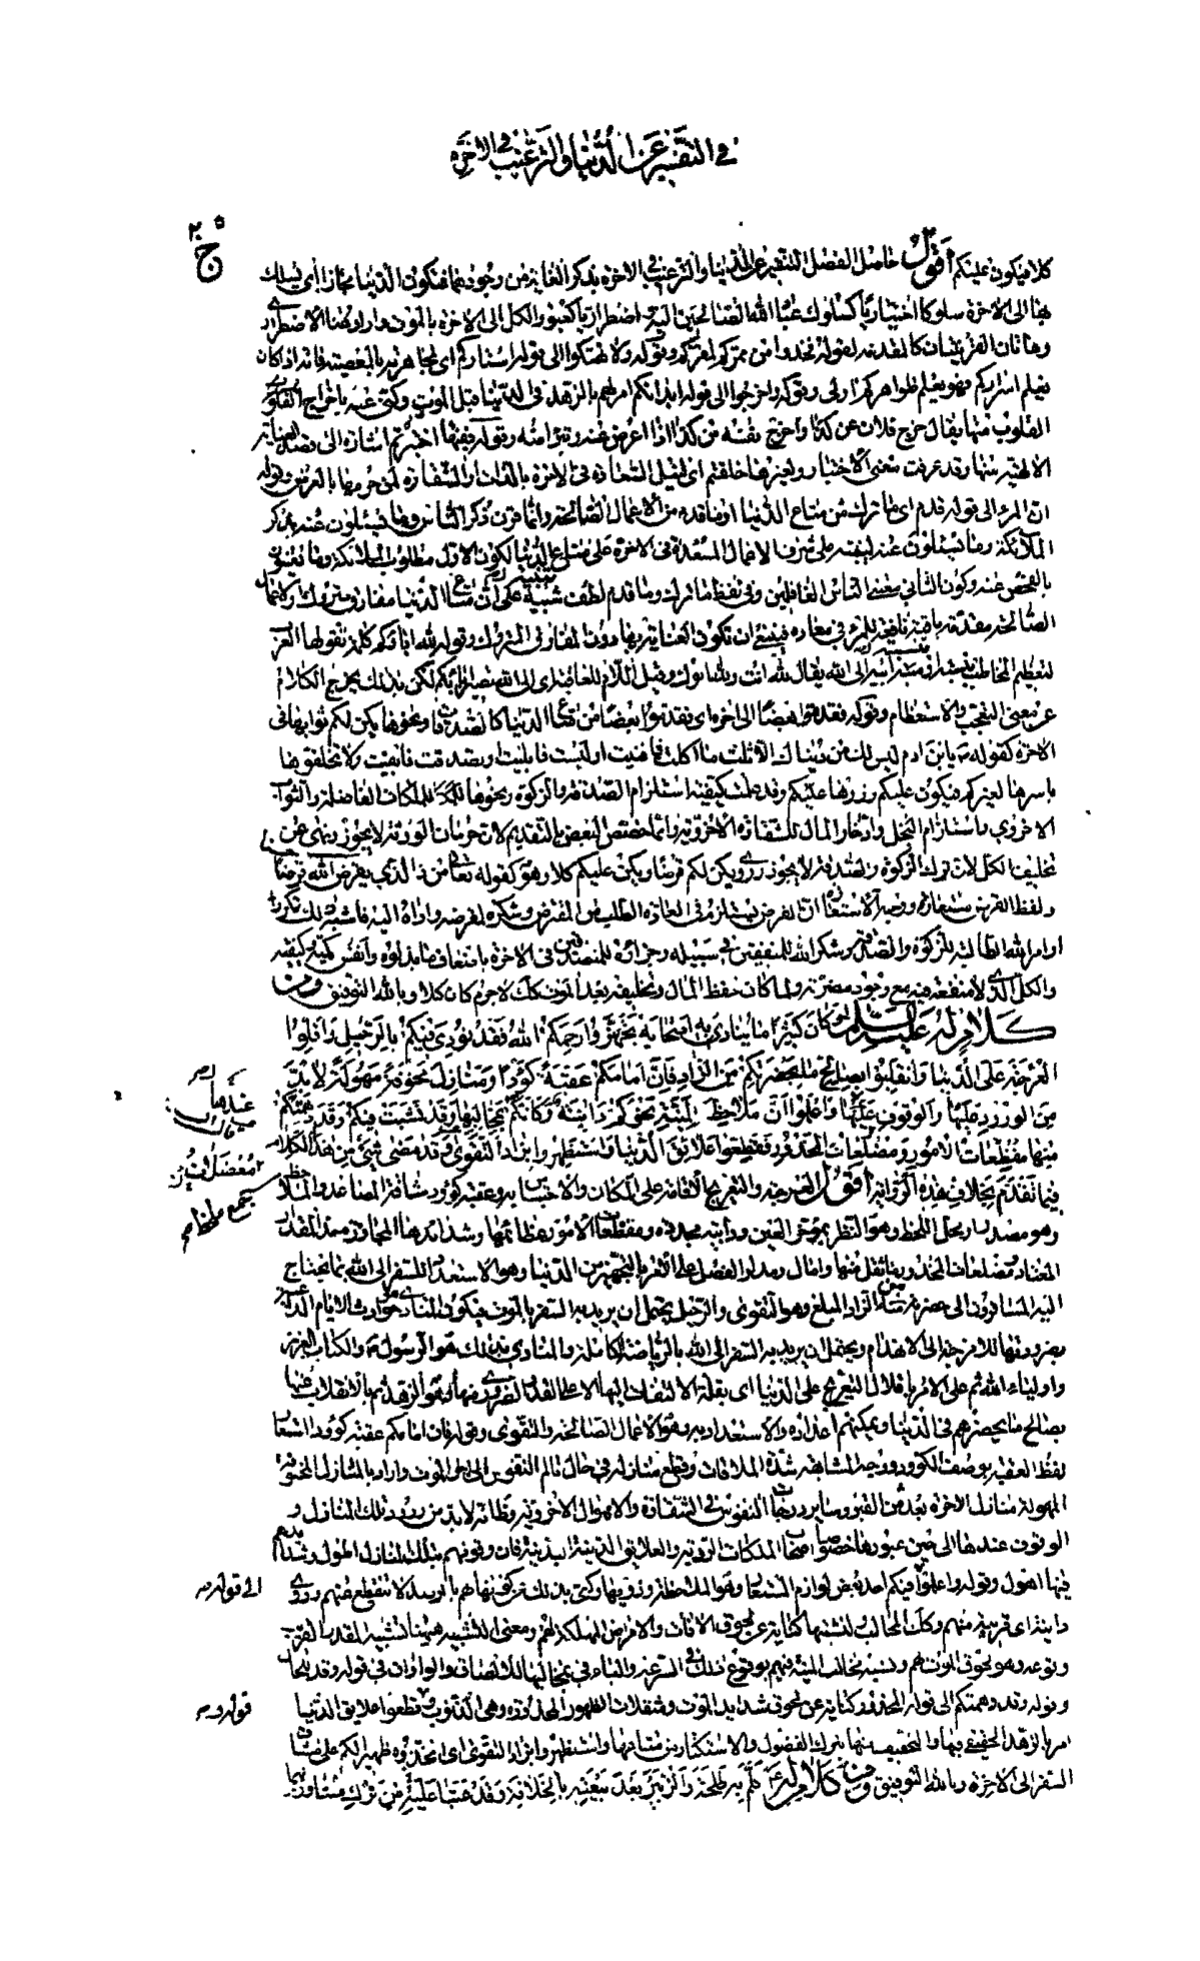 في التنفير عن الدنيا والترغيب في الاخرة
ج ٢
كلا فيكون عليكم اقول حاصل الفصل التنفير عن الدنيا والترغيب في الاخرة بذكر الغاية من وجودهما فتكون الدنيا مجازا اى يسلك
بها الى الاخرة سلوكا اختياريا كسلوك عباد الله الصالحين اليه واضطراريا كعبور الكل الى الاخرة بالموت واراد هنا الاضطرارى
وهاتان القرينتان كالمقدمة لقوله فخذوا من ممركم لمقركم وقوله ولا تهتكوا الى قوله اسراركم اى لمجاهرته بالمعصية فانه اذا كان
يعلم اسراركم فهو بعلم ظواهركم اولى وقوله واخرجوا الى قوله ابدانكم امرهم بالزهد في الدنيا قبل الموت وكنى عنه باخراج القلوب
القلوب منها يقال خرج فلان عن كذا واخرج نفسه من كذا اذا اعرض عنه وتبرأ منه وقوله ففيها اختبرتم اشارة الى قصد العناية
الالهية منها وقد عرفت معنى الاختبار ولغيرها خلقتم اى لنيل السعادة في الاخرة بالذات او الشقاوة لمن حرمها بالعرض وقوله
ان المرء الى قوله قدم اى ما ترك من متاع الدنيا او ما قدم من الاعمال الصالحة وانما قرن ذكر الناس وما يسئلون عنه بذكر
الملائكة وما يسئلون عنه لينبه على شرف الاعمال المسعدة في الاخرة على متاع الدنيا لكون الاول مطلوب الملائكة وما يعتنون
بالفحص عنه وكون الثاني معتنى الناس الغافلين وفي لفظ ما ترك وما قدم لطف شبيه على ان متاع الدنيا مفارق متروك والاعمال
الصالحة مقدمة باقية نافعة للمرء في معاده فينبغي ان تكون العناية بها دون المفارق المتروك وقوله لله اباؤكم كلمة تقولها العرب
لتعظيم المخاطب بنسبته او نسبة ابيه الى الله يقال لله انت ولله ابوك وقيل اللام للعاقبة اى الى الله تصير اباؤكم لكن بذلك يخرج الكلام
عن معنى التعجب والاستعظام وقوله فقدموا بعضا الى اخره اى فقدموا بعضا من متاع الدنيا كالصدقات ونحوها يكن لكم ثوابها في
الاخرة كقوله ص يا بن ادم ليس لك من دنياك الا ثلث ما اكلت فافنيت او لبست فابليت او تصدقت فابقيت ولا تخلفوها
باسرها لغيركم فيكون عليكم وزرها عليكم وقد علمت كيفية استلزام الصدقة والزكوة ونحوها للملكات الفاضلة والثواب
الاخروي واستلزام البخل وادخار المال للشقاوة الاخروية وانما خصص البعض بالتقديم لان حرمان الورثة لا يجوز ونهى عن
تخليف الكل لان ترك الزكوة والصدقة لا يجوز وروى يكن لكم قرضا ويكن عليكم كلا وهو كقوله تعالى من ذا الذي يقرض الله قرضا
ولفظ القرض مستعار ووجه الاستعارة ان القرض يستلزم في العادة الطلب من المقترض وشكره لمقرضه واداؤه اليه فاشبه ذلك تكرر
اوامر الله الطالبة للزكوة والصدقة وشكر الله للمنفقين في سبيله وجزاؤه للمتصدقين في الاخرة باضعاف ما بذلوه وانفس كمية وكيفية
والكل الذى لا منفعة فيه مع وجود مضرته ولما كان حفظ المال وتخليفه بعد الموت كذلك لا جرم كان كلا وبالله التوفيق ومن
كلام له عليه السلام كان كثيرا ما ينادي به اصحابه تجهزوا رحمكم الله فقد نودي فيكم بالرحيل واقلوا
العرجة على الدنيا وانقلبوا بصالح ما بحضرتكم من الزاد فان امامكم عقبة كؤدا ومنازل مخوفة مهولة لا بد
من الورود عليها والوقوف عليها واعلموا ان ملاحظ المنية نحوكم دائبة وكانكم بمخالبها وقد نشبت فيكم وقد دهمتكم
منها مفظعات الامور ومضلعات المحذور فقطعوا علائق الدنيا واستظهروا بزاد التقوى وقد مضى شيء من هذا الكلام
فيما تقدم بخلاف هذه الرواية اقول العرجة والتعريج الاقامة على المكان والاحتباس به وعقبة كؤود شاقة المصاعد والملاحظ
وهو مصدر او محل اللحظ وهو النظر بمؤخر العين ودائبة مجدة ومفظعات الامور عظائمها وشدائدها المجاوزة حد المقدار
المعتاد ومضلعات المحذور ما يثقل منها وامال ومدار الفصل على الامر بالتجهيز من الدنيا وهو الاستعداد للسفر الى الله بما يحتاج
اليه المسافرون الى حضرته من الزاد المبلغ وهو التقوى والرحيل يحتمل ان يريد به السفر بالموت فيكون المنادى هو حوادث الايام الداعية
بضرورتها للامزجة الى الانهدام ويحتمل ان يريد به السفر الى الله بالرياضة الكاملة والمنادي بذلك هو الرسول ص والكتاب العزيز
واولياء الله ثم على الامر باقلال التعريج على الدنيا اى بقلة الالتفات اليها الا على القدر الضرورى منها وهو الزهد ثم بالانقلاب عنها
بصالح ما بحضرتهم في الدنيا ويمكنهم اعداده والاستعداد به وهو الاعمال الصالحة والتقوى وقوله فان امامكم عقبة كؤودا استعار
لفظ العقبة بوصف الكؤود ووجه المشابهة شدة الملاقات وقطع منازله في حال تالم النفوس الى الموت واراد بالمنازل المخوفة
المهولة منازل الاخرة بعد الموت من القبر وساير درجات النفوس في الشقاوة والاهوال الاخروية وظاهر انه لا بد من ورود تلك المنازل و
الوقوف عندها الى حين عبورها خصوصا اصحاب الملكات الردية والعلايق الدنية البدنية فان وقوفهم بتلك المنازل اطول وشدايدهم
فيها اهول وقوله واعلموا فيكم اخذ بعض لوازم المستعار وهو الملاحظة ودؤبها وكنى بذلك عن كونها لهم بالرصد لا تنقطع عنهم وروى
دانية اى قريبة منهم وكذلك المخالب لنشبها كناية عن لحوق الافات والامراض المهلكة لهم ومعنى التشبيه هيهنا تشبيه المقدر القريب
وقوعه وهو لحوق الموت لهم ونشبه مخالب المنية فيهم بوقوع ذلك في السرعة والباء في بمخالبها للالصاق والواوان في قوله وقد للحال
وقوله وقد دهمتكم الى قوله المحذور كناية عن لحوق شدايد الموت ومثقلات الظهور المحذورة وهي الذنوب وقطعوا علايق الدنيا
امر بالزهد الحقيقي فيها والتخفيف منها بترك الفضول والاستكثار من متاعها واستظهروا بزاد التقوى اى اتخذوه ظهيرا لكم على مشاق
السفر الى الاخرة وبالله التوفيق ومن كلام له ع كلم به طلحة والزبير بعد بيعته بالخلافة وقد عتبا عليه من ترك مشاورتهما
عندها
معضلات
الى قوله
قوله